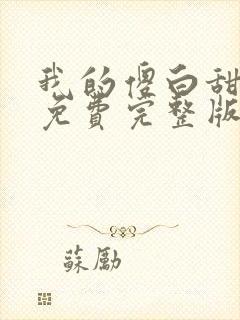 我的傻白甜
免費完整版
蘇勵